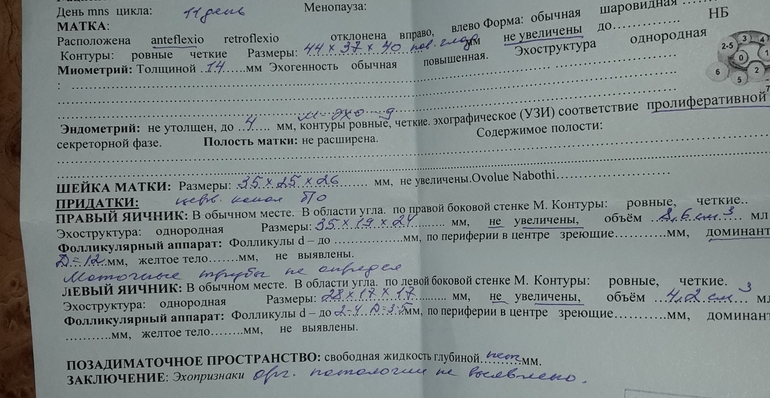 День mns цикла: 11 день Менопауза:
МАТКА:
Расположена anteflexio retroflexio отклонена вправо, влево Форма: обычная шаровидная
Контуры: ровные четкие Размеры: 44 x 37 x 40 мм не увеличены до НБ
Миометрий: Толщиной 14 мм Эхогенность обычная повышенная. Эхоструктура однородная
3 4 2-5 0 1 6 5 2 7
М-эхо
Эндометрий: не утолщен, до 4 мм, контуры ровные, четкие. эхографическое (УЗИ) соответствие пролиферативной
секреторной фазе. Полость матки: не расширена. Содержимое полости:
ШЕЙКА МАТКИ: Размеры: 35 x 25 x 26 мм, не увеличены. Ovolue Nabothi
ПРИДАТКИ: церв. канал б/о
ПРАВЫЙ ЯИЧНИК: В обычном месте. В области угла. по правой боковой стенке М. Контуры: ровные, четкие..
Эхоструктура: однородная Размеры: 35 x 19 x 24 мм, не увеличены, объём 8,6 см 3 мл
Фолликулярный аппарат: Фолликулы d – до мм, по периферии в центре зреющие мм, доминант
D=12 мм, желтое тело мм, не выявлены.
Маточные трубы не определ
ЛЕВЫЙ ЯИЧНИК: В обычном месте. В области угла. по левой боковой стенке М. Контуры: ровные, четкие.
Эхоструктура: однородная Размеры: 28 x 17 x 17 мм, не увеличены, объём 4,2 см 3 мл
Фолликулярный аппарат: Фолликулы d – до мм, по периферии в центре зреющие мм, доминант
мм, желтое тело мм, не выявлены.
ПОЗАДИМАТОЧНОЕ ПРОСТРАНСТВО: свободная жидкость глубиной нет мм.
ЗАКЛЮЧЕНИЕ: Эхопризнаки орг. патологии не выявлено.